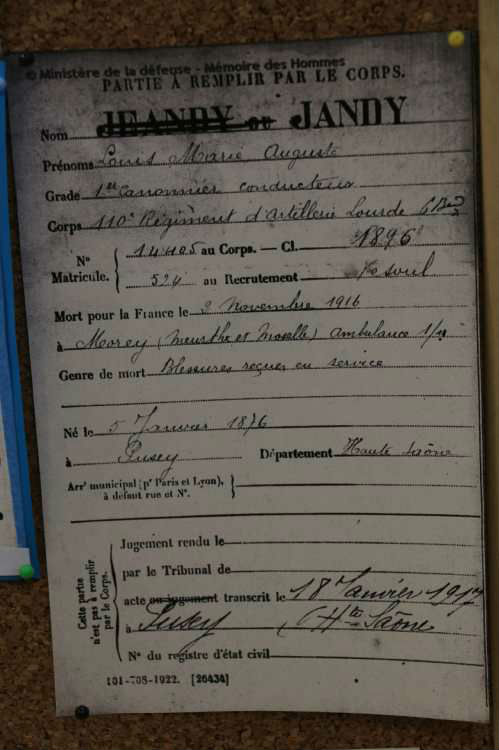 © Ministère de la défense - Mémoire des Hommes
PARTIE À REMPLIR PAR LE CORPS.
Nom JEANDY OU JANDY
Prénoms Louis Marie Auguste
Grade 1er Canonnier conducteur
Corps 110e Régiment d'Artillerie Lourde 6 Bie
N° Matricule. { 14405 au Corps. — Cl. 1896
524 au Recrutement Vesoul
Mort pour la France le 2 Novembre 1916
à Morey (Meurthe et Moselle) Ambulance
Genre de mort Blessures reçues en service
Né le 5 Janvier 1876
à Pusey Département Haute Saône
Arrt municipal (pr Paris et Lyon), à défaut rue et N°. }
Cette partie n'est pas à remplir par le Corps.
Jugement rendu le
par le Tribunal de
acte ou jugement transcrit le 18 Janvier 1917
à Pusey (Hte Saône
N° du registre d'état civil
101-708-1922. [26434]